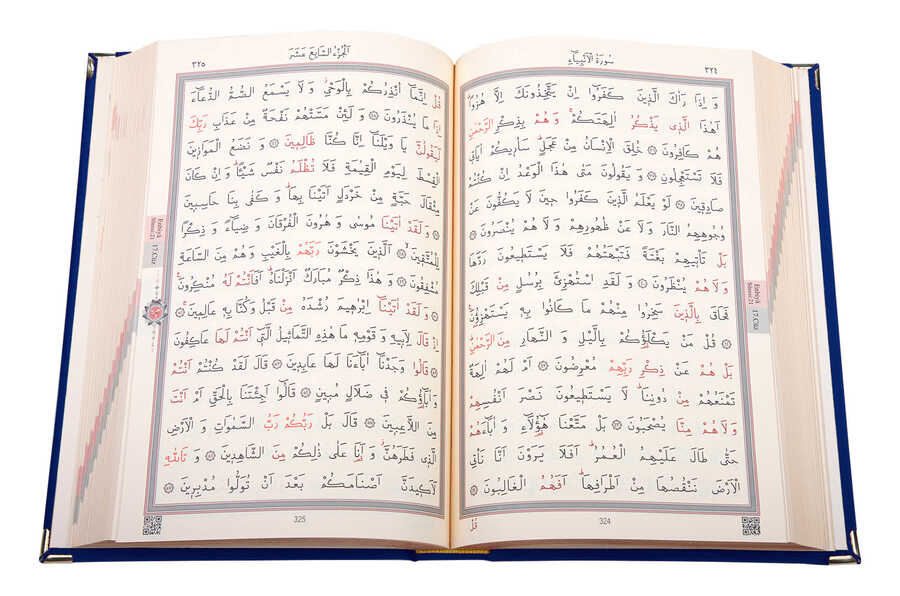 سُورَةُ الْاَنْبِيَاءِ
٣٢٤
وَ اِذَا رَاٰكَ الَّذِينَ كَفَرُٓوا اِنْ يَتَّخِذُونَكَ اِلَّا هُزُوًاۜ
اَهٰذَا الَّذِي يَذْكُرُ اٰلِهَتَكُمْۚ وَ هُمْ بِذِكْرِ الرَّحْمٰنِ
هُمْ كَافِرُونَ ﴿٣٦﴾ خُلِقَ الْاِنْسَانُ مِنْ عَجَلٍۜ سَاُر۪يكُمْ اٰيَاتِي
فَلَا تَسْتَعْجِلُونِ ﴿٣٧﴾ وَ يَقُولُونَ مَتٰى هٰذَا الْوَعْدُ اِنْ كُنْتُمْ
صَادِقِينَ ﴿٣٨﴾ لَوْ يَعْلَمُ الَّذِينَ كَفَرُوا حِينَ لَا يَكُفُّونَ عَنْ
وُجُوهِهِمُ النَّارَ وَ لَا عَنْ ظُهُورِهِمْ وَ لَا هُمْ يُنْصَرُونَ ﴿٣٩﴾
بَلْ تَأْتِيهِمْ بَغْتَةً فَتَبْهَتُهُمْ فَلَا يَسْتَطِيعُونَ رَدَّهَا
وَ لَا هُمْ يُنْظَرُونَ ﴿٤٠﴾ وَ لَقَدِ اسْتُهْزِئَ بِرُسُلٍ مِنْ قَبْلِكَ
فَحَاقَ بِالَّذِينَ سَخِرُوا مِنْهُمْ مَا كَانُوا بِهِ يَسْتَهْزِؤُنَ۟
﴿٤١﴾ قُلْ مَنْ يَكْلَؤُكُمْ بِالَّيْلِ وَ النَّهَارِ مِنَ الرَّحْمٰنِۜ
بَلْ هُمْ عَنْ ذِكْرِ رَبِّهِمْ مُعْرِضُونَ ﴿٤٢﴾ اَمْ لَهُمْ اٰلِهَةٌ
تَمْنَعُهُمْ مِنْ دُونِنَاۜ لَا يَسْتَطِيعُونَ نَصْرَ اَنْفُسِهِمْ
وَ لَا هُمْ مِنَّا يُصْحَبُونَ ﴿٤٣﴾ بَلْ مَتَّعْنَا هٰٓؤُلَٓاءِ وَ اٰبَٓاءَهُمْ
حَتّٰى طَالَ عَلَيْهِمُ الْعُمُرُۜ اَفَلَا يَرَوْنَ اَنَّا نَأْتِي
الْاَرْضَ نَنْقُصُهَا مِنْ اَطْرَافِهَاۜ اَفَهُمُ الْغَالِبُونَ ﴿٤٤﴾
قُلْ
324
Enbiyâ
Sûresi:21
17.Cüz
اَلْجُزْءُ السَّابِعَ عَشَرَ
٣٢٥
قُلْ اِنَّمَٓا اُنْذِرُكُمْ بِالْوَحْيِۘ وَ لَا يَسْمَعُ الصُّمُّ الدُّعَٓاءَ
اِذَا مَا يُنْذَرُونَ ﴿٤٥﴾ وَ لَئِنْ مَسَّتْهُمْ نَفْحَةٌ مِنْ عَذَابِ رَبِّكَ
لَيَقُولُنَّ يَا وَيْلَنَٓا اِنَّا كُنَّا ظَالِمِينَ ﴿٤٦﴾ وَ نَضَعُ الْمَوَازِينَ
الْقِسْطَ لِيَوْمِ الْقِيٰمَةِ فَلَا تُظْلَمُ نَفْسٌ شَيْـًٔاۜ وَ اِنْ كَانَ
مِثْقَالَ حَبَّةٍ مِنْ خَرْدَلٍ اَتَيْنَا بِهَاۜ وَ كَفٰى بِنَا حَاسِبِينَ
﴿٤٧﴾ وَ لَقَدْ اٰتَيْنَا مُوسٰى وَ هٰرُونَ الْفُرْقَانَ وَ ضِيَٓاءً وَ ذِكْرًا
لِلْمُتَّقِينَۙ ﴿٤٨﴾ اَلَّذِينَ يَخْشَوْنَ رَبَّهُمْ بِالْغَيْبِ وَ هُمْ مِنَ السَّاعَةِ
مُشْفِقُونَ ﴿٤٩﴾ وَ هٰذَا ذِكْرٌ مُبَارَكٌ اَنْزَلْنَاهُۜ اَفَاَنْتُمْ لَهُ مُنْكِرُونَ۟
﴿٥٠﴾ وَ لَقَدْ اٰتَيْنَٓا اِبْرٰهِيمَ رُشْدَهُ مِنْ قَبْلُ وَ كُنَّا بِهِ عَالِمِينَۚ ﴿٥١﴾
اِذْ قَالَ لِاَبِيهِ وَ قَوْمِهِ مَا هٰذِهِ التَّمَاثِيلُ الَّتِي اَنْتُمْ لَهَا عَاكِفُونَ
﴿٥٢﴾ قَالُوا وَجَدْنَٓا اٰبَٓاءَنَا لَهَا عَابِدِينَ ﴿٥٣﴾ قَالَ لَقَدْ كُنْتُمْ اَنْتُمْ
وَ اٰبَٓاؤُكُمْ فِي ضَلَالٍ مُبِينٍ ﴿٥٤﴾ قَالُٓوا اَجِئْتَنَا بِالْحَقِّ اَمْ اَنْتَ
مِنَ اللَّاعِبِينَ ﴿٥٥﴾ قَالَ بَلْ رَبُّكُمْ رَبُّ السَّمٰوَاتِ وَ الْاَرْضِ
الَّذِي فَطَرَهُنَّۘ وَ اَنَا عَلٰى ذٰلِكُمْ مِنَ الشَّاهِدِينَ ﴿٥٦﴾ وَ تَاللّٰهِ
لَاَكِيدَنَّ اَصْنَامَكُمْ بَعْدَ اَنْ تُوَلُّوا مُدْبِرِينَ ﴿٥٧﴾
325
Enbiyâ
Sûresi:21
17.Cüz